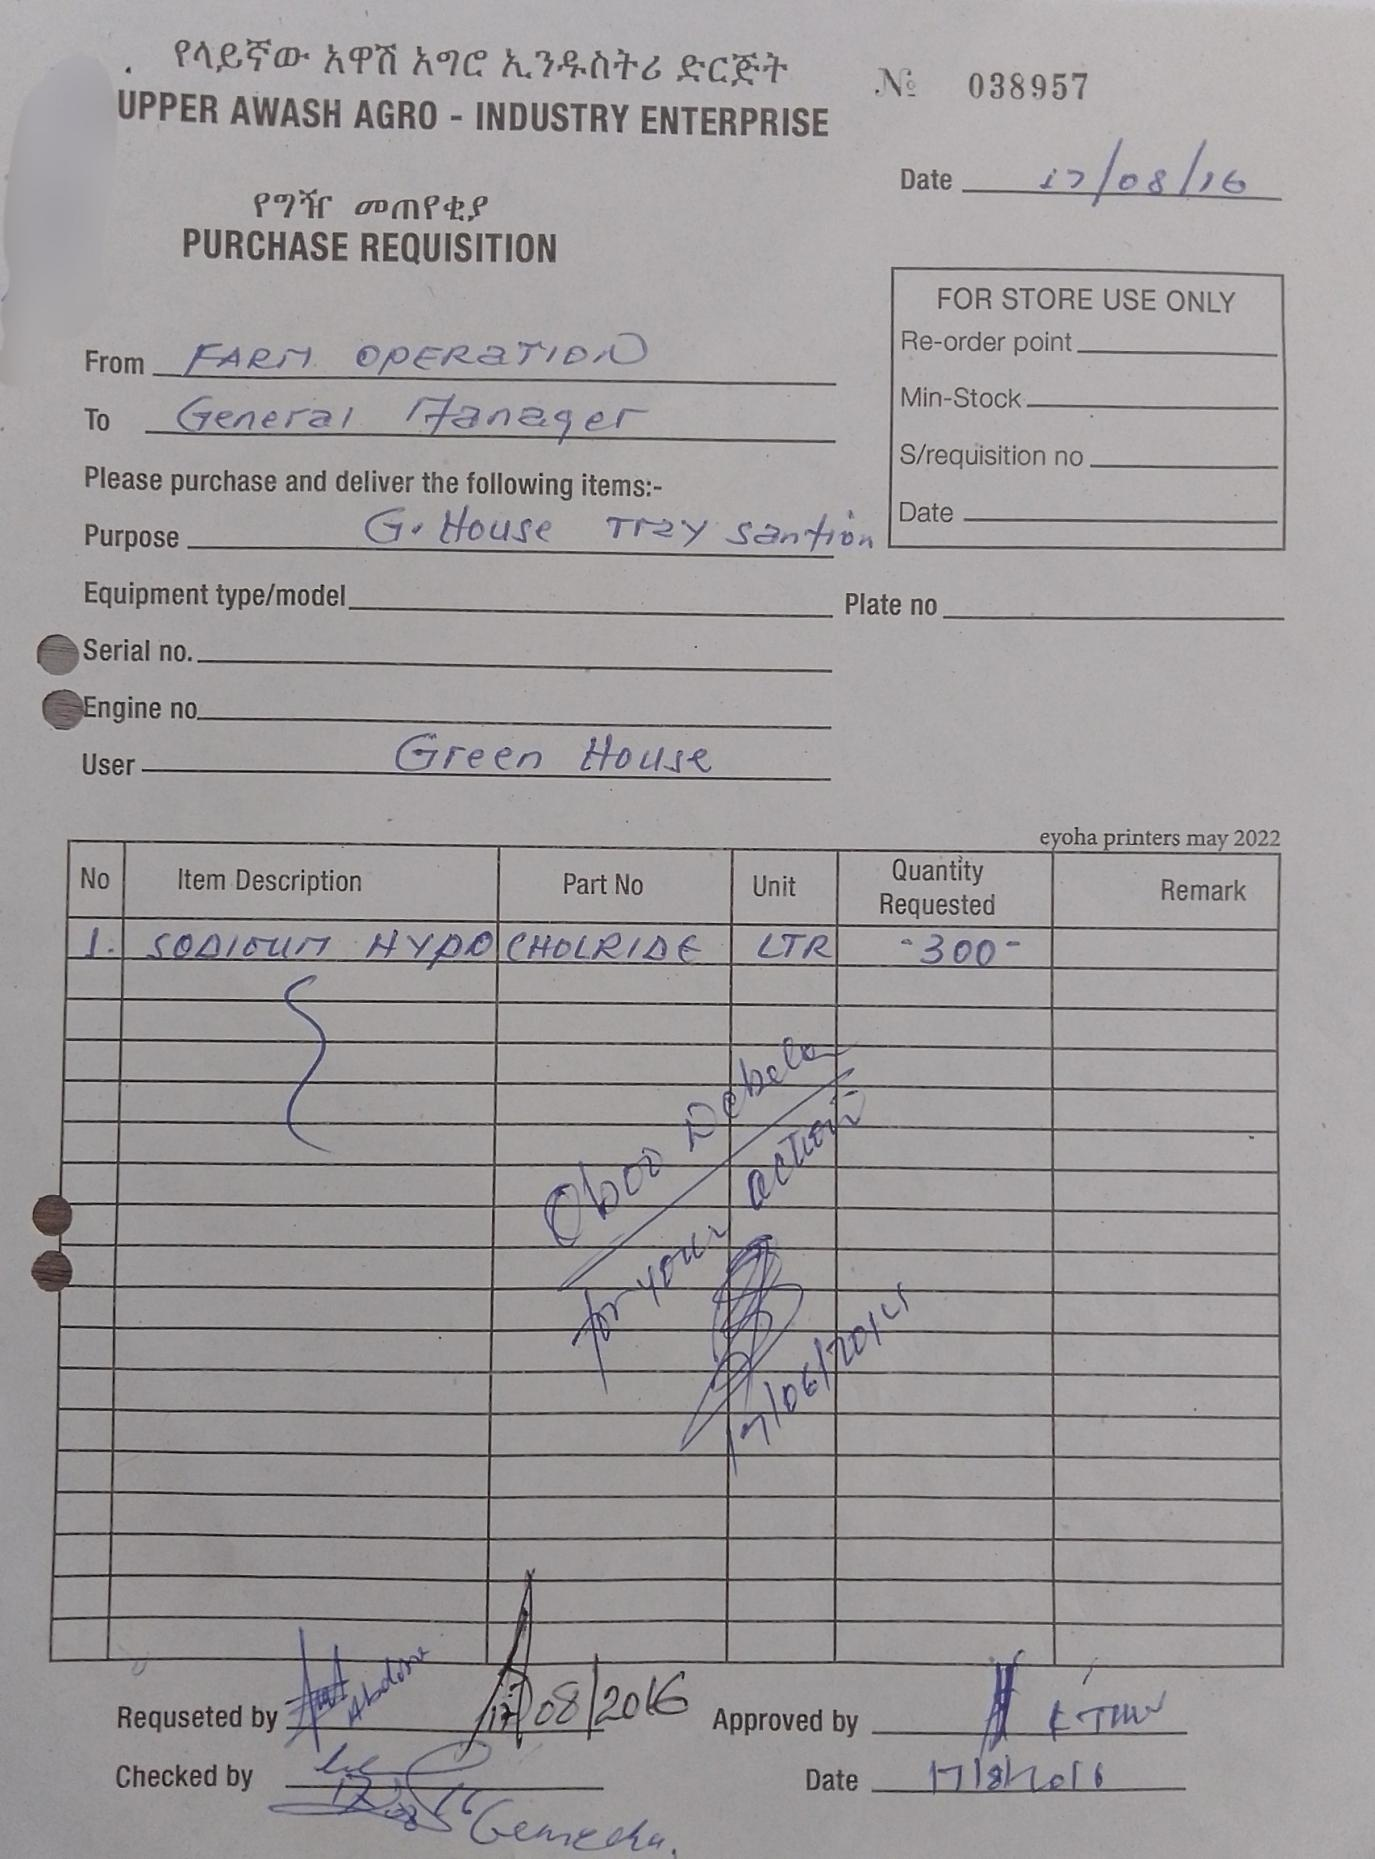 የላይኛው አዋሽ አግሮ ኢንዱስትሪ ድርጅት
UPPER AWASH AGRO - INDUSTRY ENTERPRISE
№ 038957
Date 17/08/16
የግዥ መጠየቂያ
PURCHASE REQUISITION
FOR STORE USE ONLY
Re-order point
Min-Stock
S/requisition no
Date
From FARM OPERATION
To General Manager
Please purchase and deliver the following items:-
Purpose G. House Tray Santion
Equipment type/model
Plate no
Serial no.
Engine no
User Green House
eyoha printers may 2022
No Item Description Part No Unit Quantity Requested Remark
1. SODIOUM HYPO CHOLRIDE LTR -300-
Oboo Debela
for your action
Requseted by 17/08/2016
Approved by
Checked by Gemechu.
Date 17/8/2016